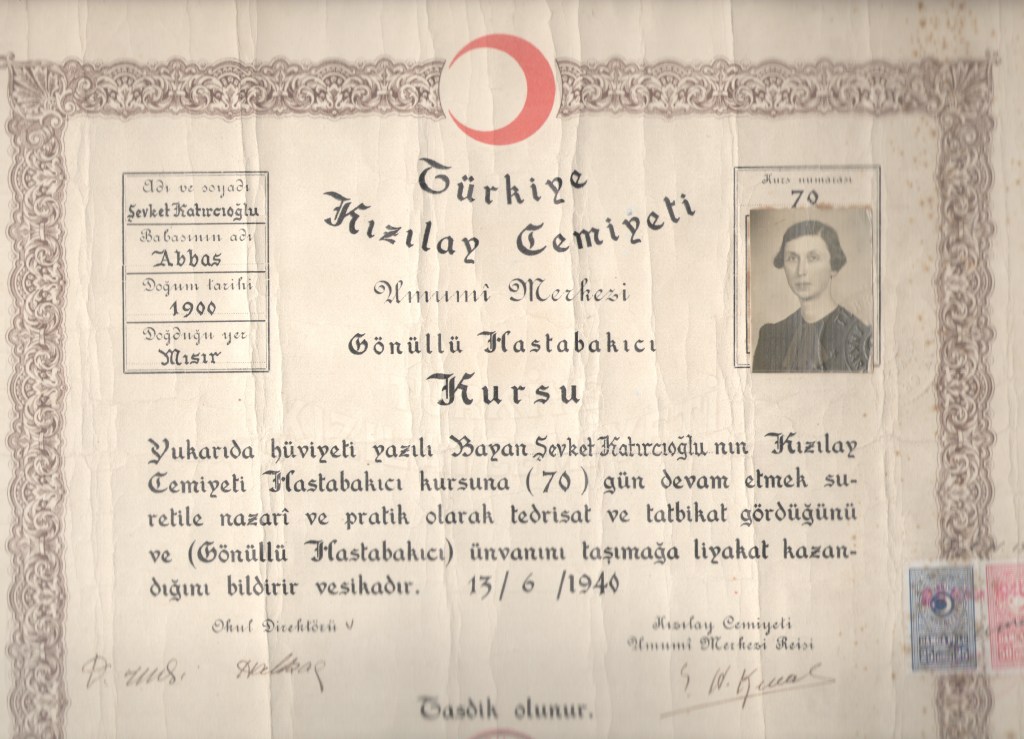 Türkiye
Kızılay Cemiyeti
Umumî Merkezi
Gönüllü Hastabakıcı
Kursu
Adı ve soyadı
Şevket Katırcıoğlu
Babasının adı
Abbas
Doğum tarihi
1900
Doğduğu yer
Mısır
Kurs numarası
70
Yukarıda hüviyeti yazılı Bayan Şevket Katırcıoğlu nın Kızılay
Cemiyeti Hastabakıcı kursuna (70) gün devam etmek su-
retile nazarî ve pratik olarak tedrisat ve tatbikat gördüğünü
ve (Gönüllü Hastabakıcı) ünvanını taşımağa liyakat kazan-
dığını bildirir vesikadır. 13/6/1940
Okul Direktörü
Kızılay Cemiyeti
Umumî Merkezi Reisi
Tasdik olunur.